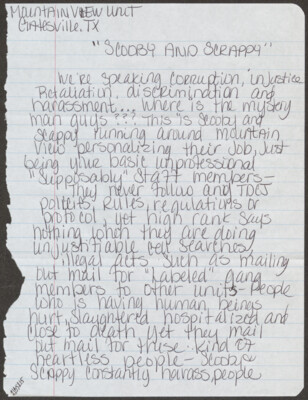 Mountain View Unit
Gatesville, TX
"SCOOBY AND SCRAPPY"
We're speaking corruption, injustice
Retaliation, discrimination and
harassment... where is the mystery
man guys??? This is Scooby and
Scrappy running around mountain
view personalizing their job, just
being your basic unprofessional
"supposably" staff members-
They never follow and TDCJ
policies, rules, regulations or
protocol, yet high rank says
nothing when they are doing
unjustifiable cell searches,
illegal acts, such as mailing
out mail for "labeled" gang
members to other units- people
who is having human beings
hurt, slaughtered hospitalized and
close to death yet they mail
out mail for these kind of
heartless people- Scooby
Scrappy constantly harass people